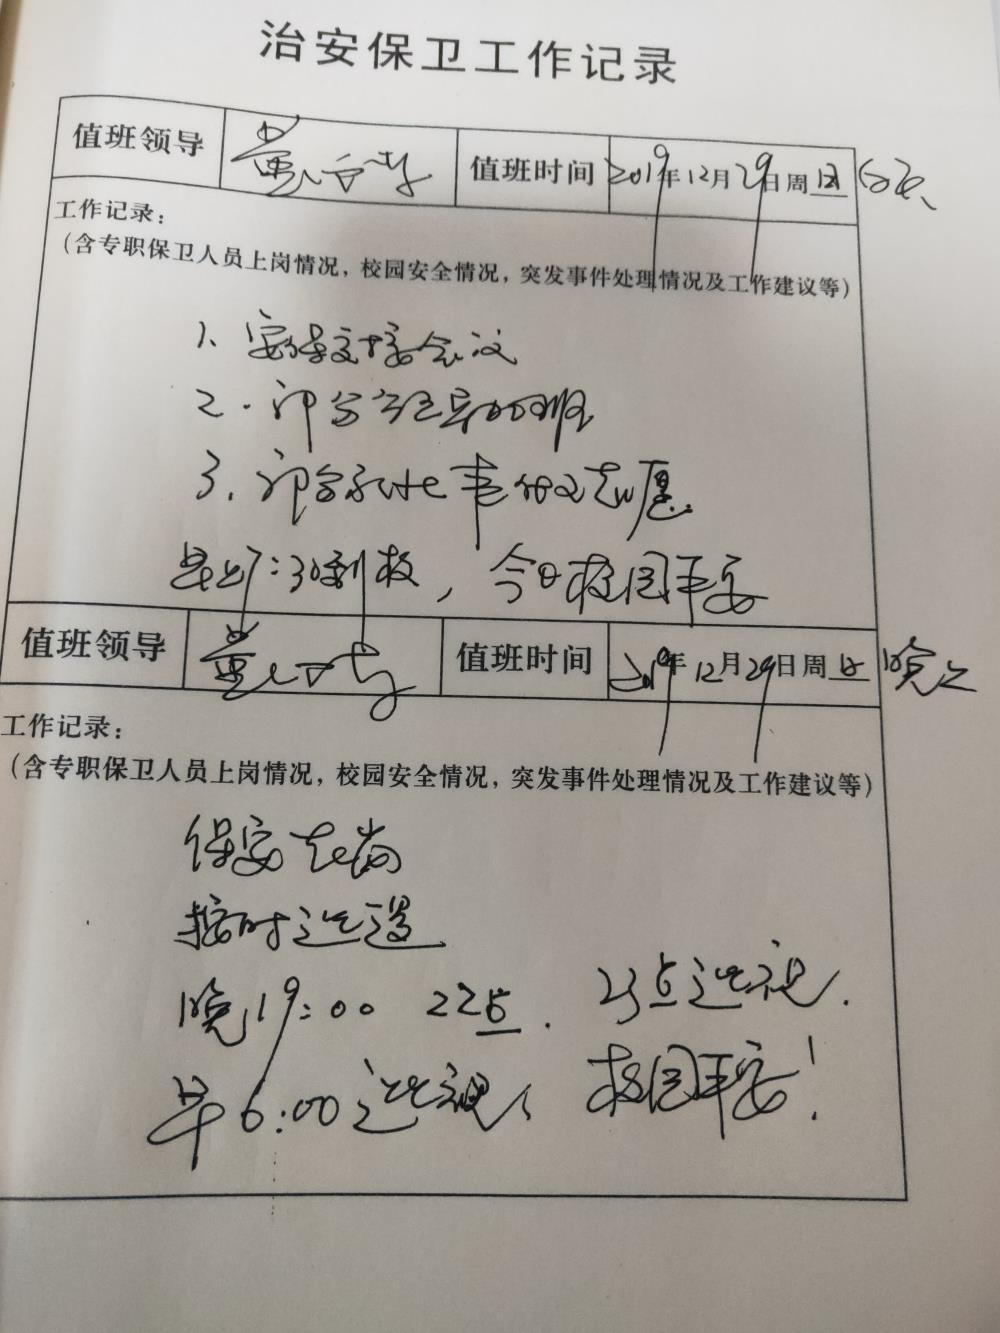 治安保卫工作记录
值班领导 董 值班时间 2019年12月29日周日
工作记录：
（含专职保卫人员上岗情况，校园安全情况，突发事件处理情况及工作建议等）
1、安保交接会议
2.部分
3.部分 志愿
到校，今日校园平安
值班领导 董 值班时间 2019年12月29日周日 晚上
工作记录：
（含专职保卫人员上岗情况，校园安全情况，突发事件处理情况及工作建议等）
保安在岗
按时巡逻
晚19:00 22点. 23点巡视.
早6:00巡视、 校园平安！